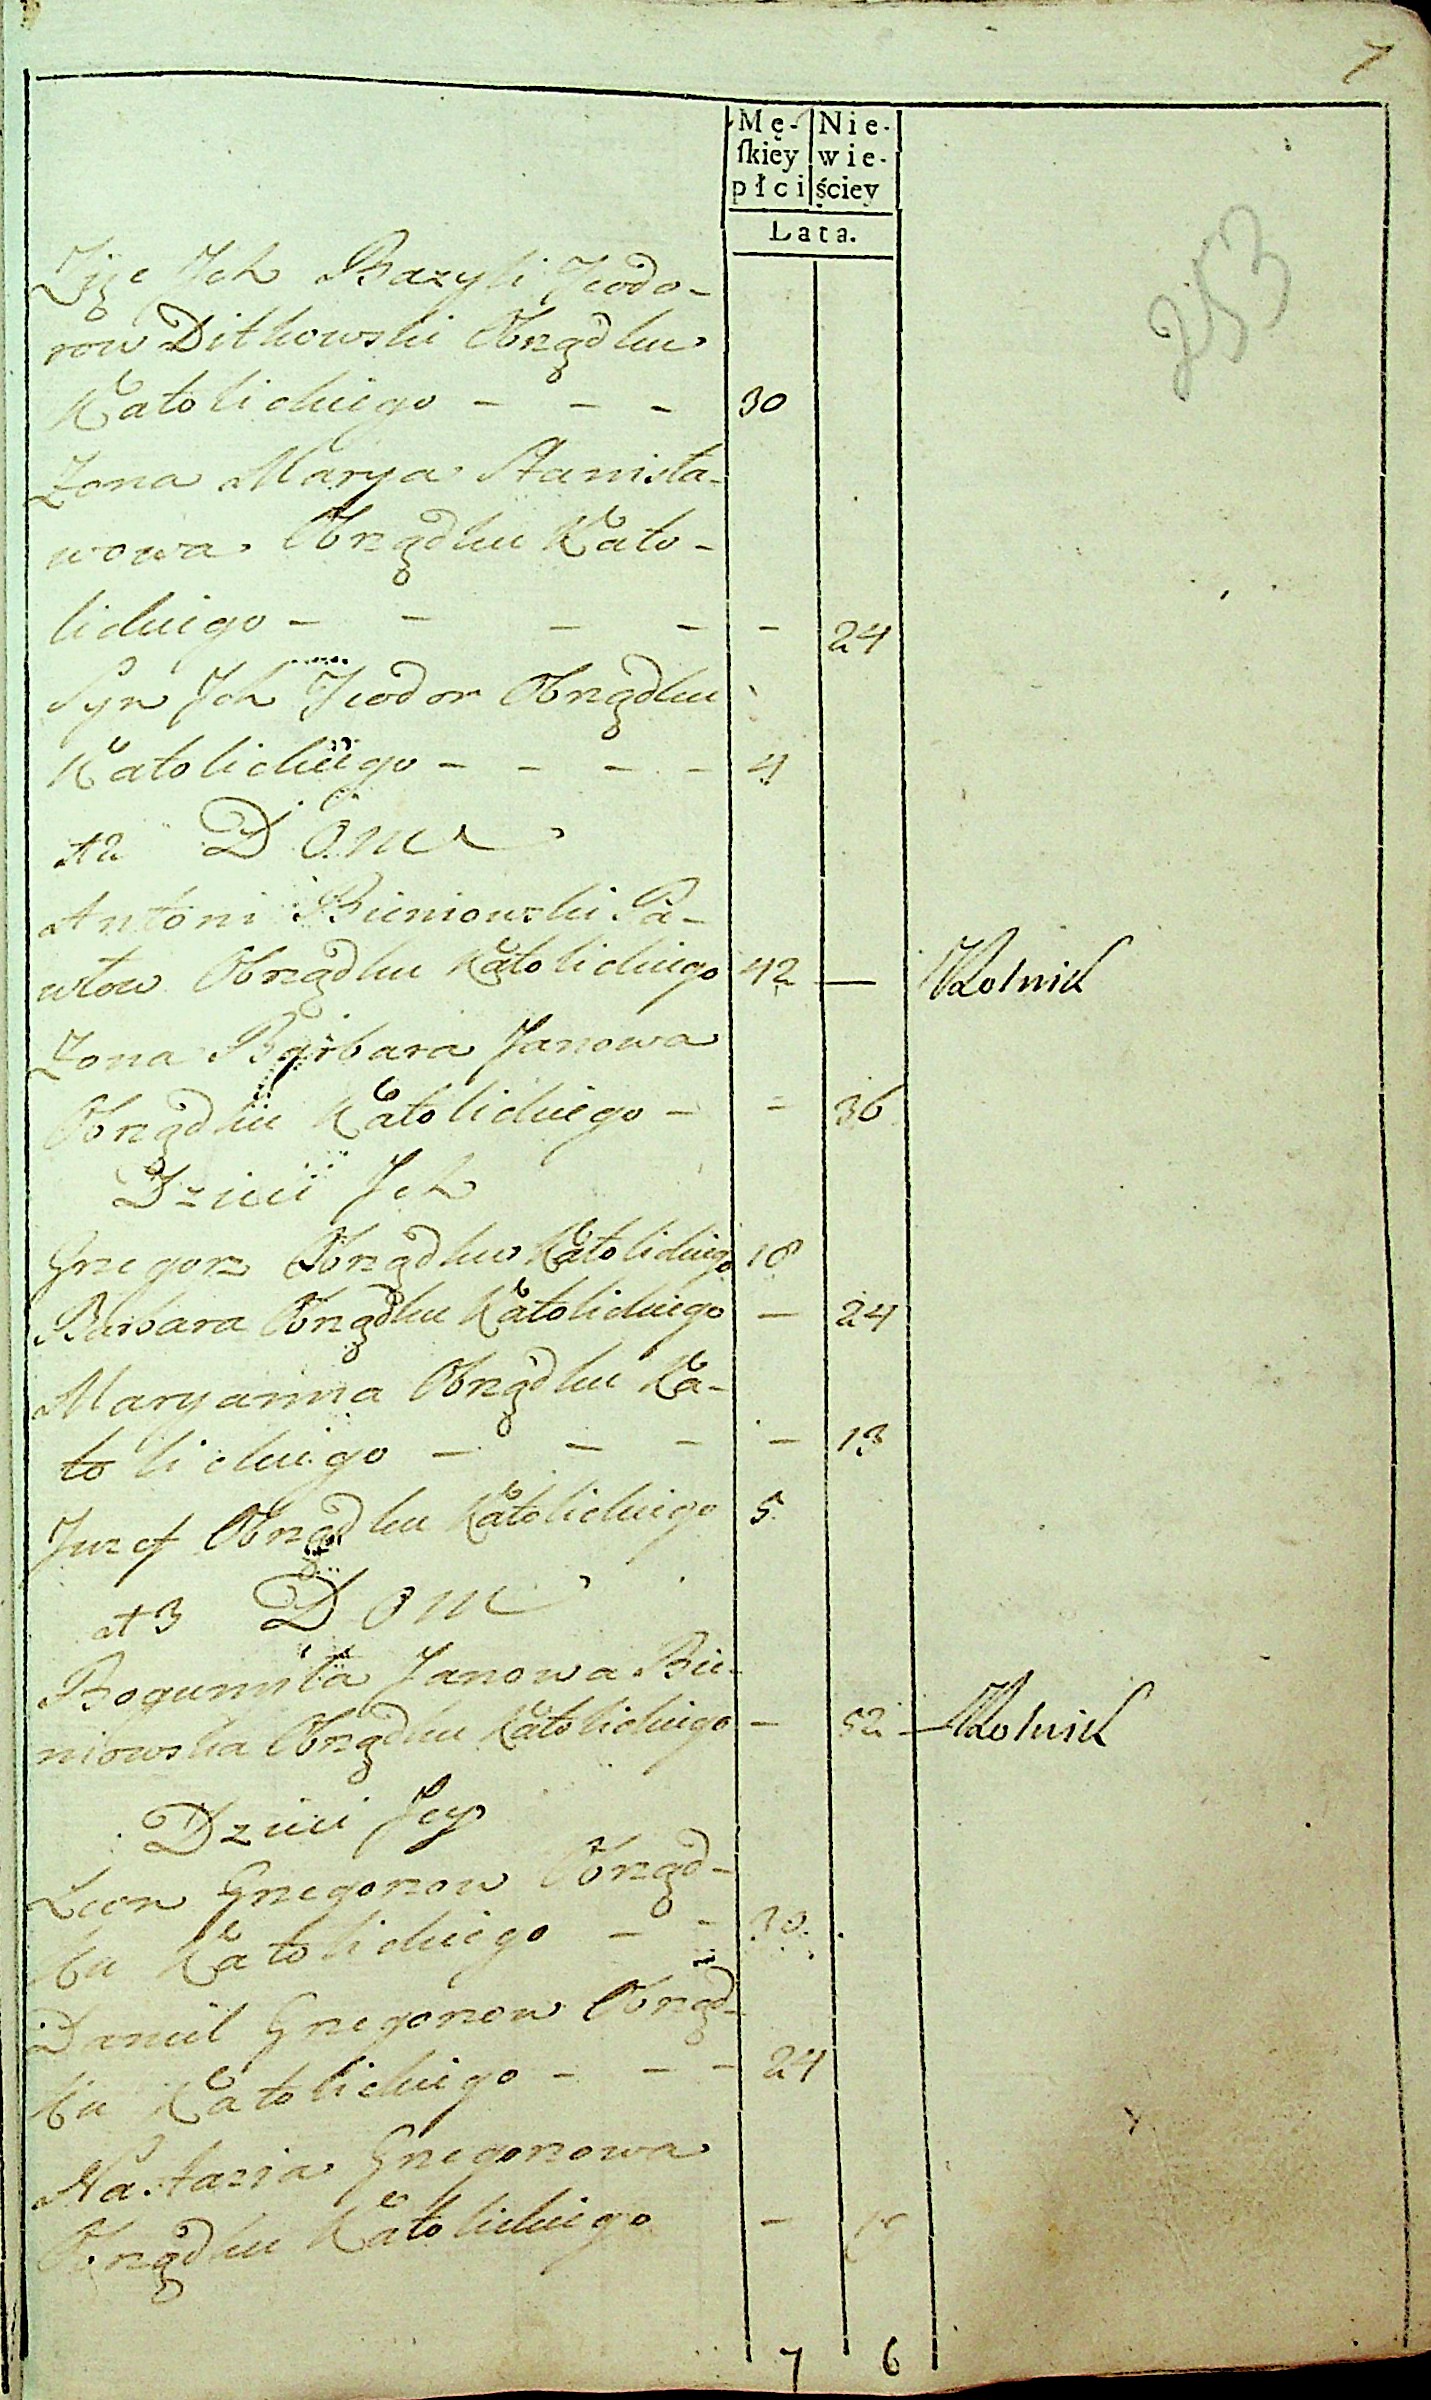 7
Mę- Nie-
skiey wie-
płci ściey
Lata.
253
Zięc Ich Bazyli Teodo-
row Ditkowski Obrządku
Katolickiego - - - 30
Zona Marya Stanisła-
wowa Obrządku Kato-
lickiego - - - - - 24
Syn Ich Teodor Obrządku
Katolickiego - - - - 4
2 Dom
Antoni Bieniowski Pa-
włow Obrządku Katolickiego 42 — Rolnik
Zona Barbara Janowa
Obrządku Katolickiego - - 36
Dzieci Ich
Gregorz Obrządku Katolickiego 18
Barbara Obrządku Katolickiego — 24
Maryanna Obrządku Ka-
tolickiego - - - - 13
Juzef Obrządku Katolickiego 5
3 Dom
Bogumiła Janowa Bie-
niowska Obrządku Katolickiego — 52 - Rolnik
Dzieci Jey
Leon Gregorzow Obrząd-
ku Katolickiego - - 30
Daniel Gregorzow Obrząd-
ku Katolickiego - - - 24
Nastazia Gregorzowa
Obrządku Katolickiego -
7 6